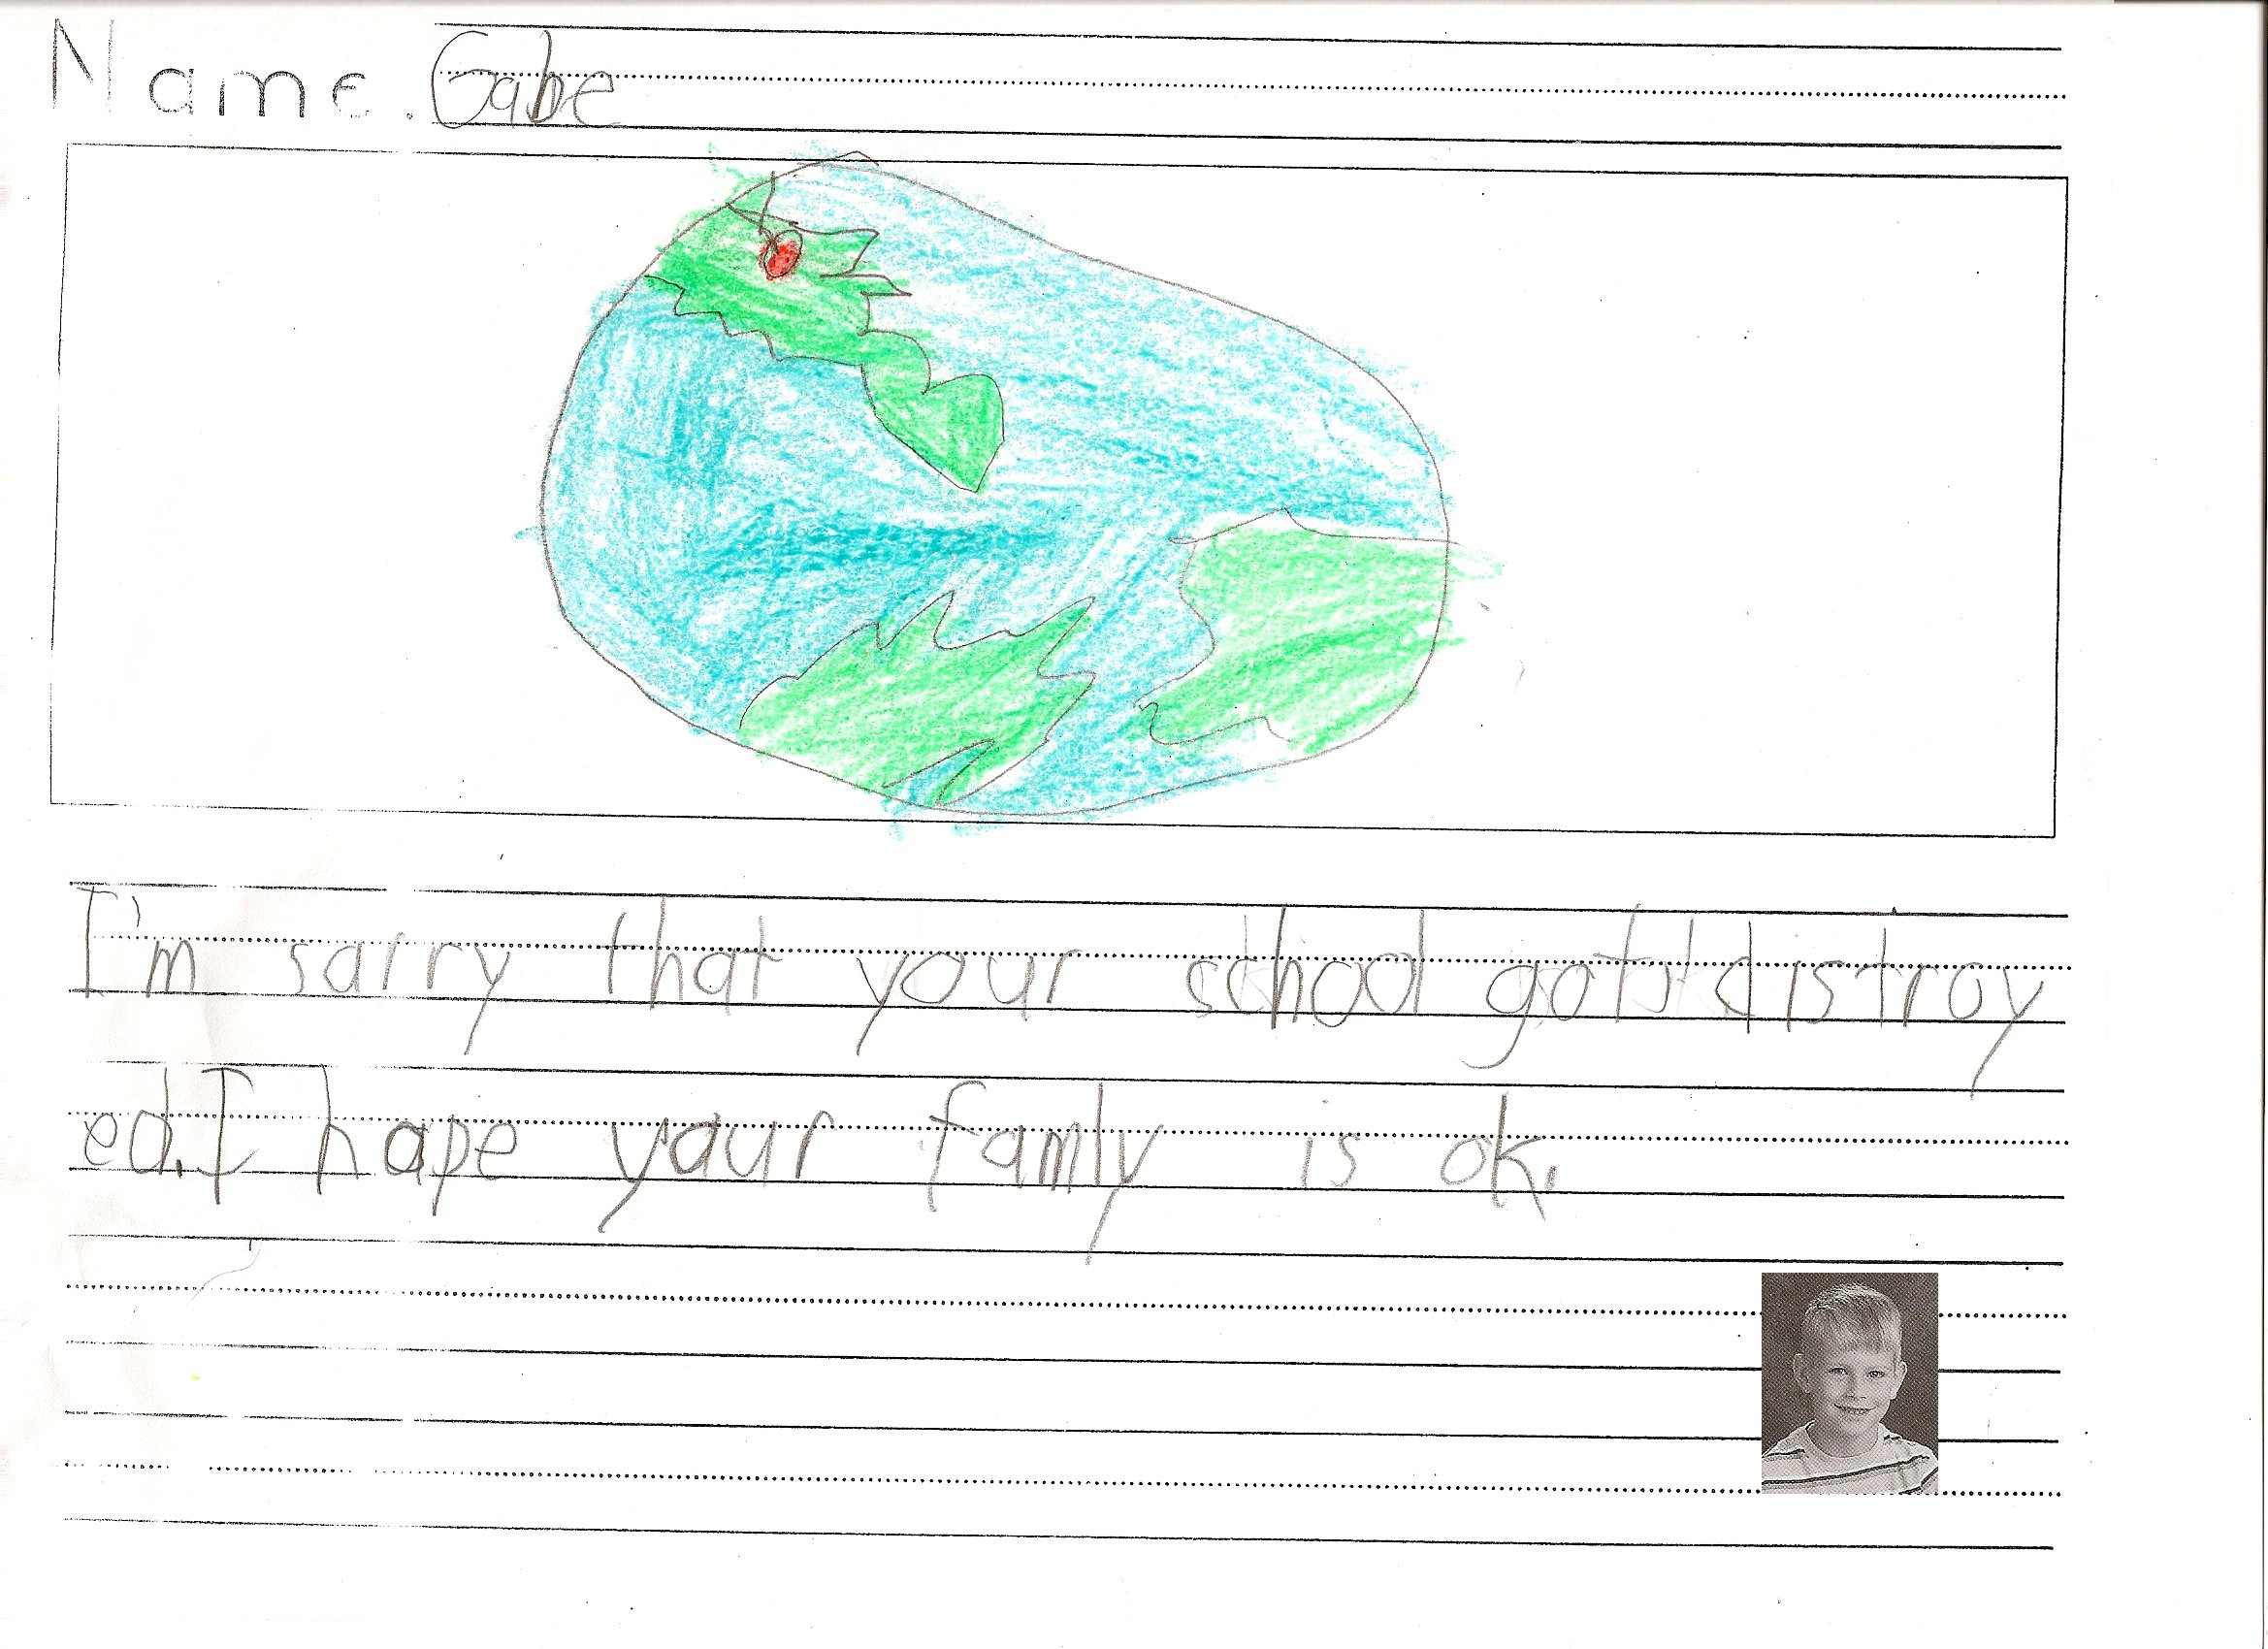 Name. Gabe
I'm sarry that your school got distroy
ed. I hope yaur famly is ok.